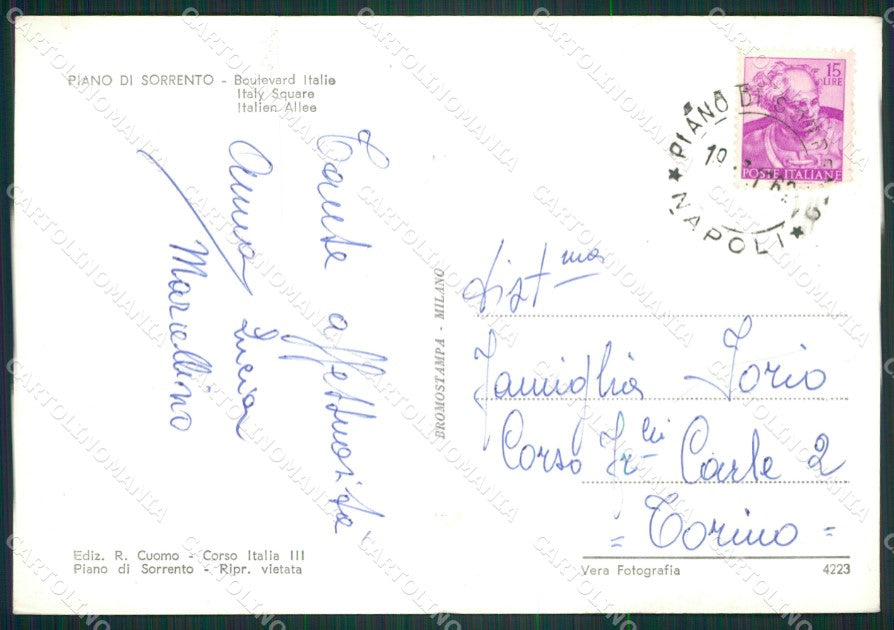 PIANO DI SORRENTO - Boulevard Italie
Italy Square
Italien Allee
Tante affettuosità
Anna Lucia
Marcellino
Ediz. R. Cuomo - Corso Italia III
Piano di Sorrento - Ripr. vietata
BROMOSTAMPA - MILANO
15
LIRE
POSTE ITALIANE
PIANO DI SORRENTO
NAPOLI
Dist ma
Famiglia Iorio
Corso Fr lli Carle 2
= Torino =
Vera Fotografia 4223
CARTOLINOMANIA